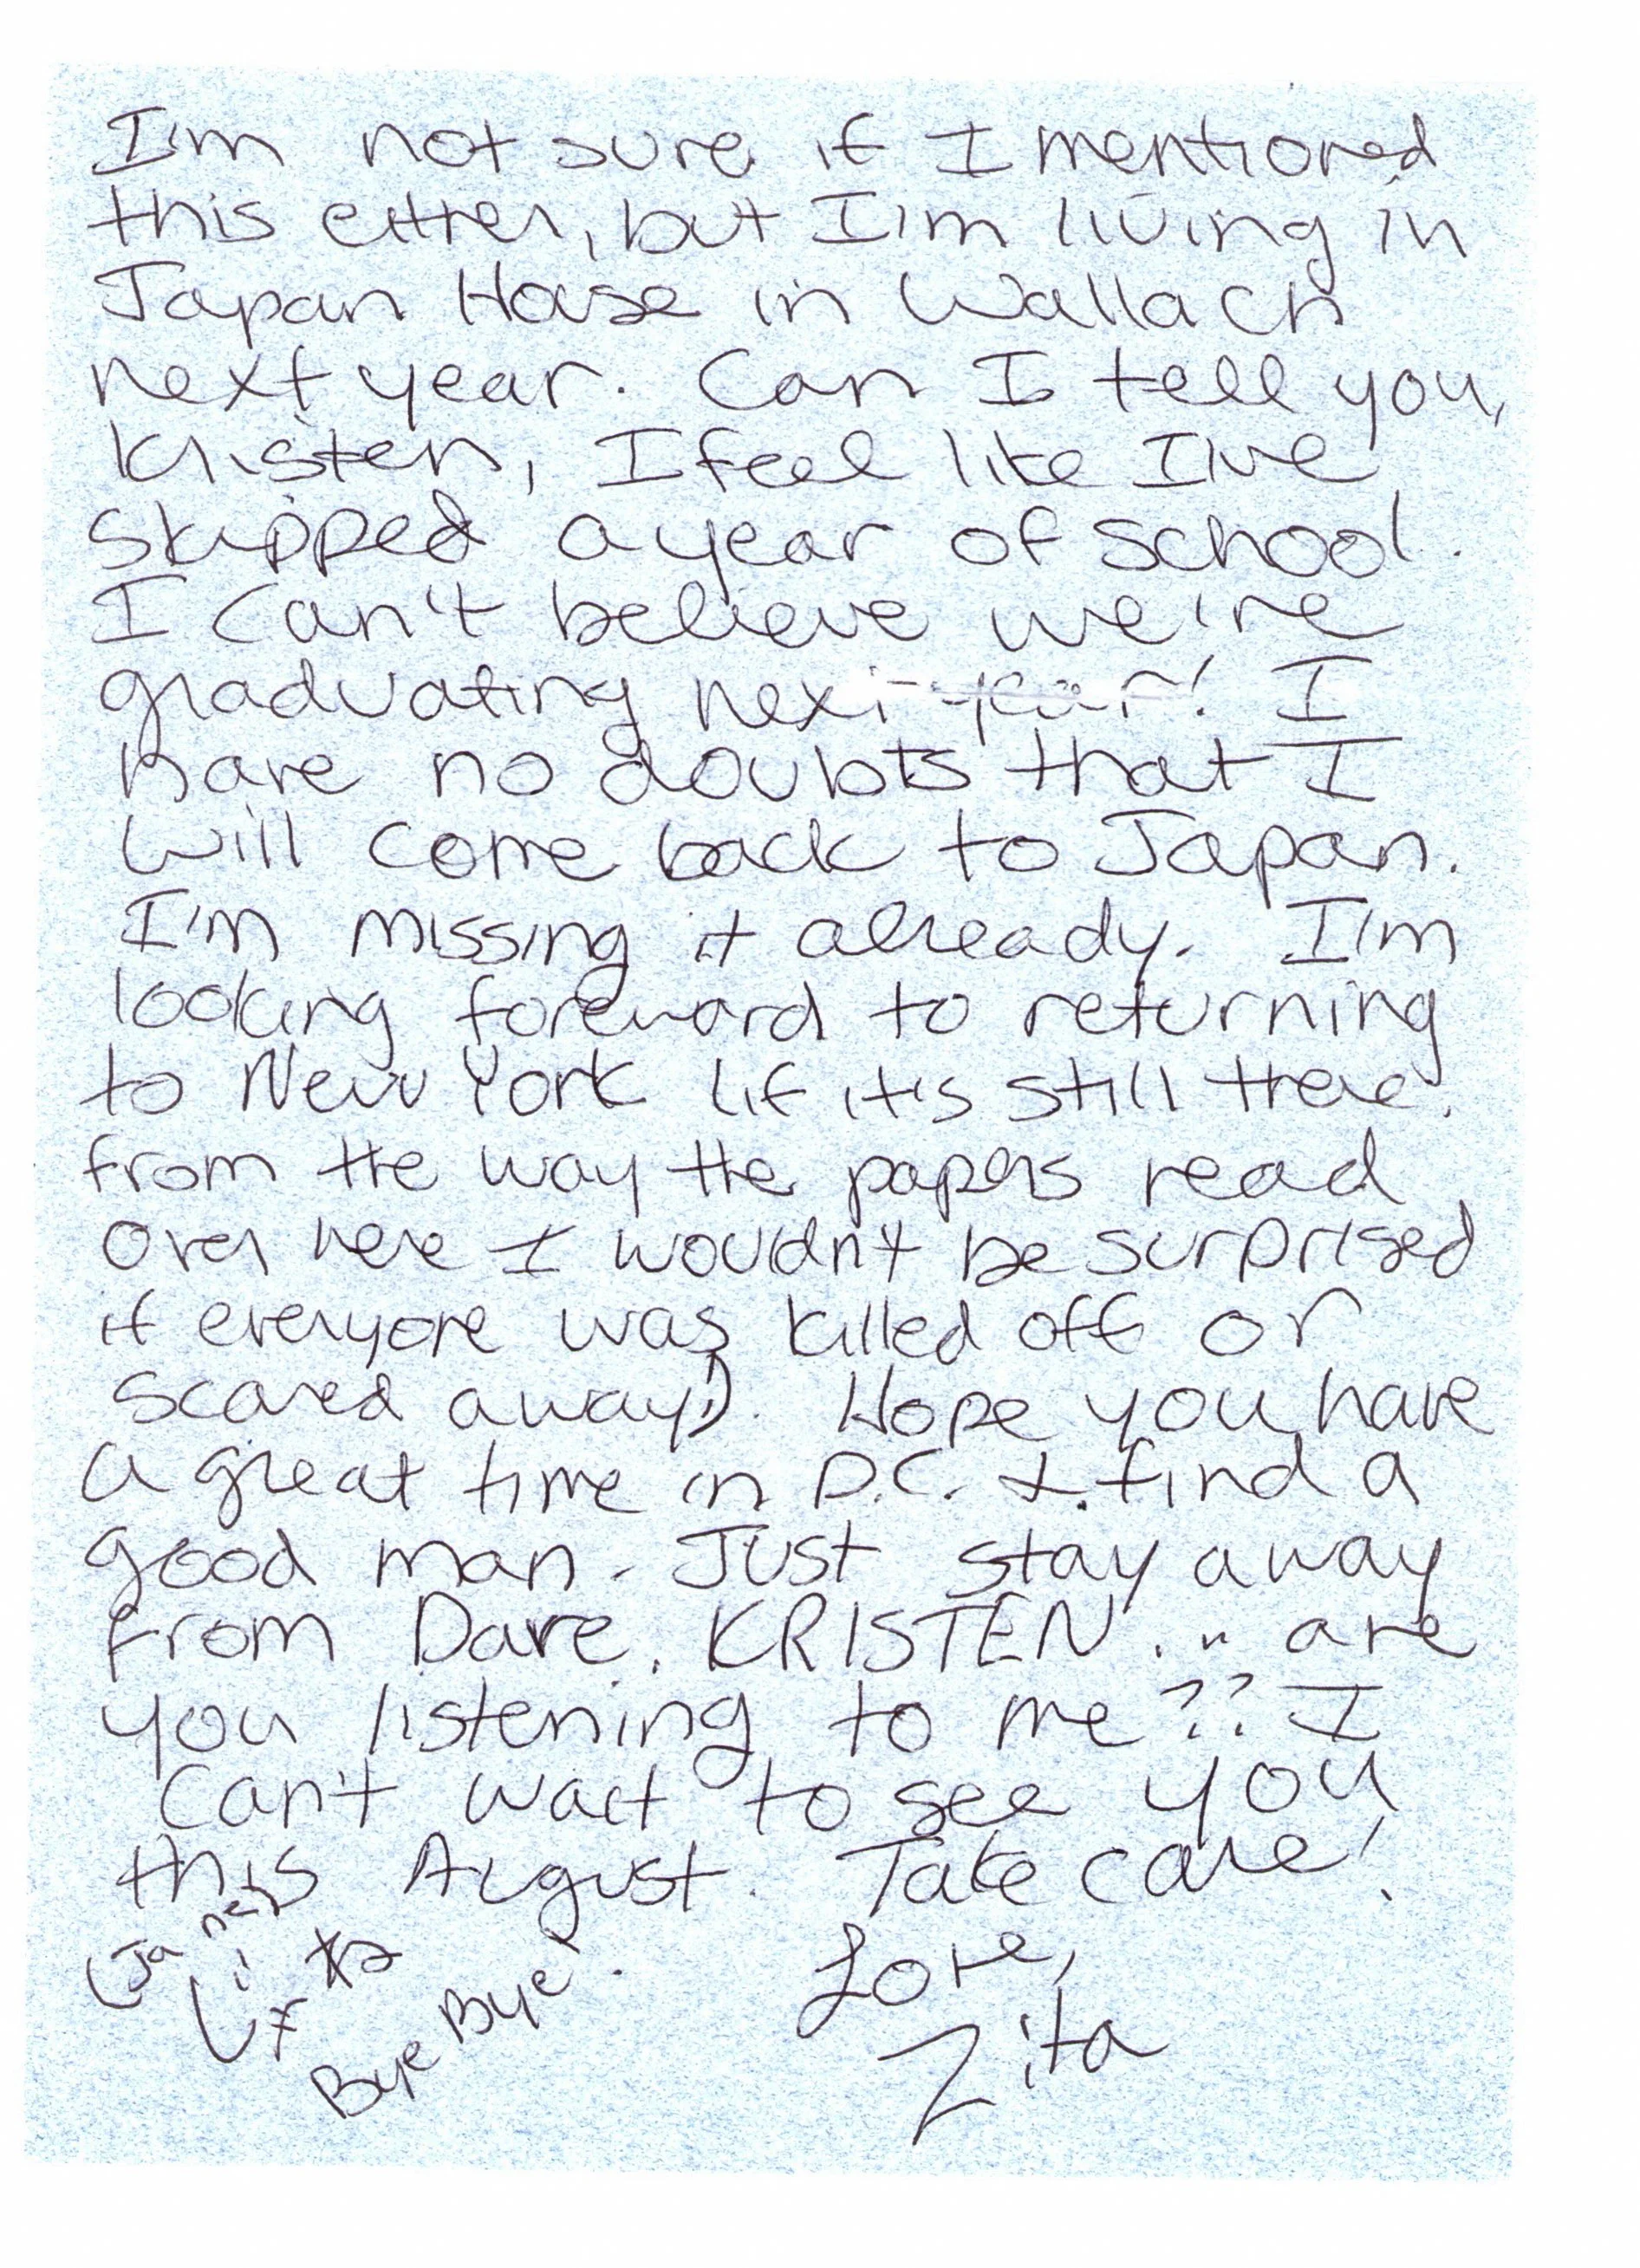 I'm not sure if I mentioned
this either, but I'm living in
Japan House in Wallach
next year. Can I tell you,
Kristen, I feel like I've
skipped a year of school.
I can't believe we're
graduating next year! I
have no doubts that I
will come back to Japan.
I'm missing it already. I'm
looking foreward to returning
to New York (if it's still there.
from the way the papers read
over here I wouldn't be surprised
if everyone was killed off or
scared away!). Hope you have
a great time in D.C. & find a
good man. Just stay away
from Dave. KRISTEN... are
you listening to me?? I
can't wait to see you
this August. Take care!
Love,
Zita
Bye Bye!